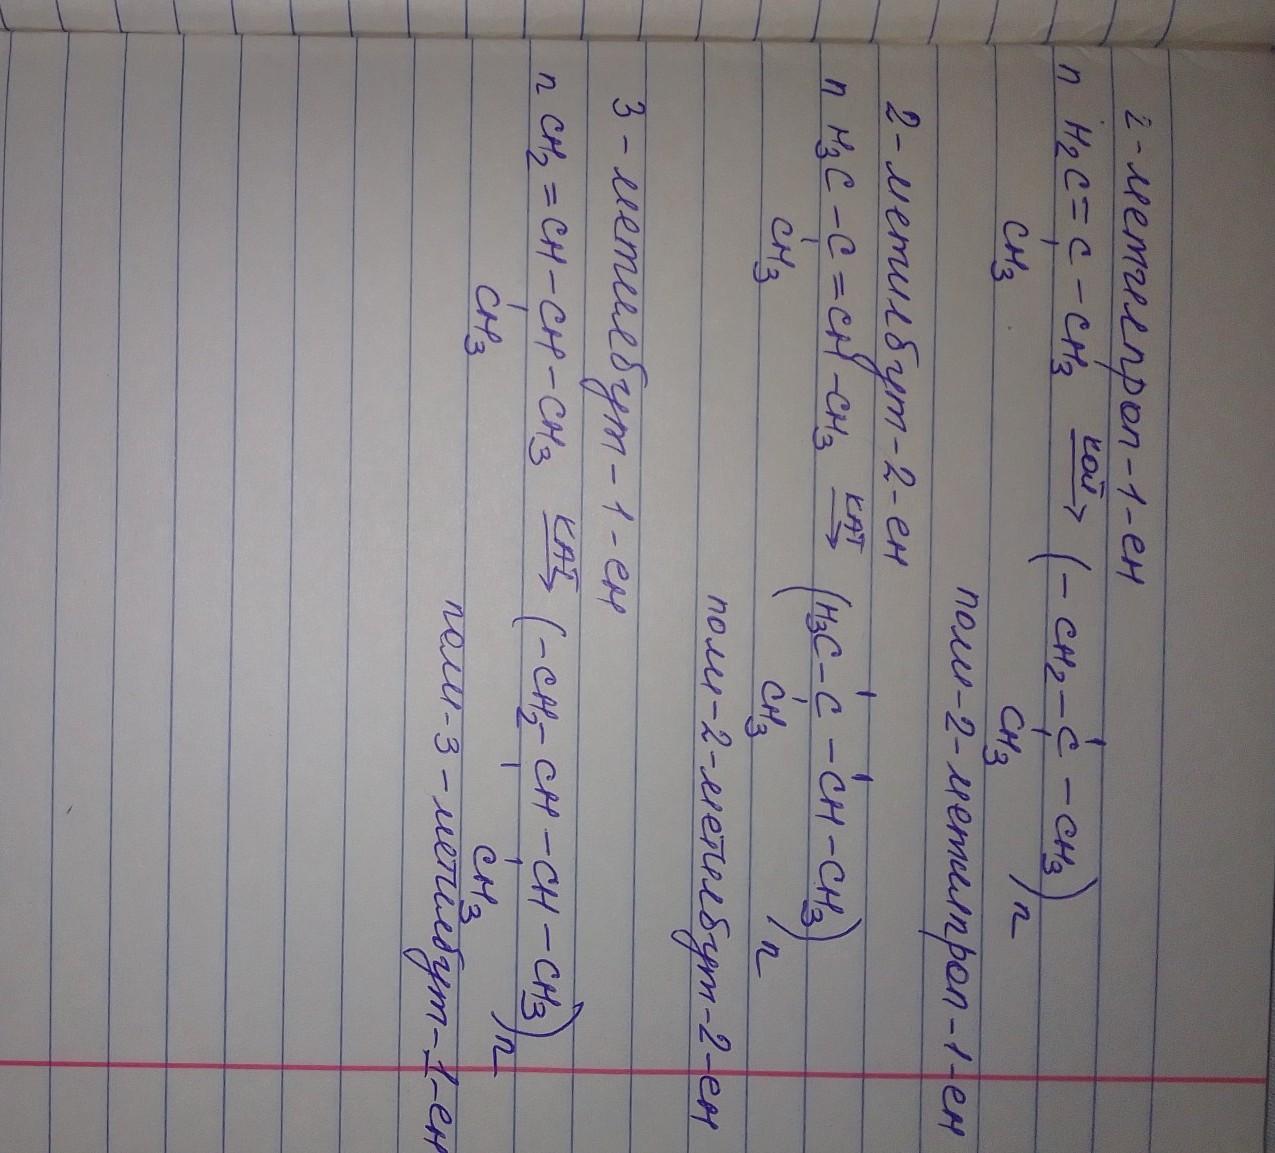 2-метилпроп-1-ен
n H₂C=C-CH₃ кат → (-CH₂-C-CH₃)n
CH₃ CH₃
поли-2-метилпроп-1-ен
2-метилбут-2-ен
n H₃C-C=CH-CH₃ КАТ → (H₃C-C-CH-CH₃)n
CH₃ CH₃
поли-2-метилбут-2-ен
3-метилбут-1-ен
n CH₂=CH-CH-CH₃ КАТ → (-CH₂-CH-CH-CH₃)n
CH₃ CH₃
поли-3-метилбут-1-ен